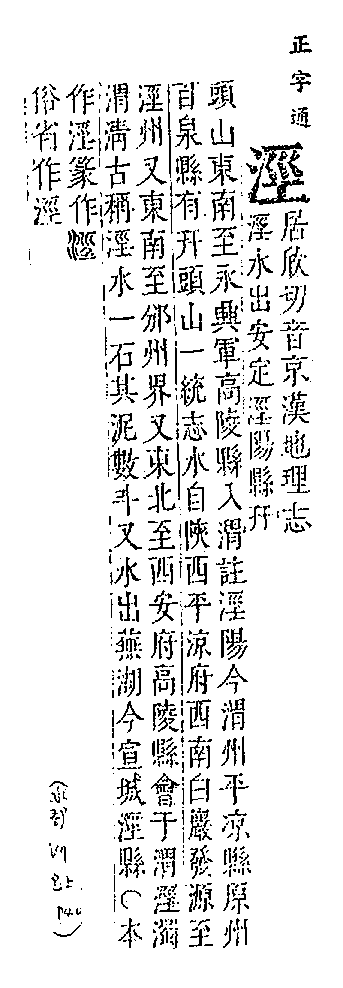 正字通
涇
居欣切音京漢地理志
涇水出安定涇陽縣幵
頭山東南至永興軍高陵縣入渭註涇陽今渭州平凉縣原州
百泉縣有幵頭山一統志水自陝西平凉府西南白巖發源至
涇州又東南至邠州界又東北至西安府高陵縣會于渭涇濁
渭淸古稱涇水一石其泥數斗又水出蕪湖今宣城涇縣○本
作涇篆作
俗省作涇